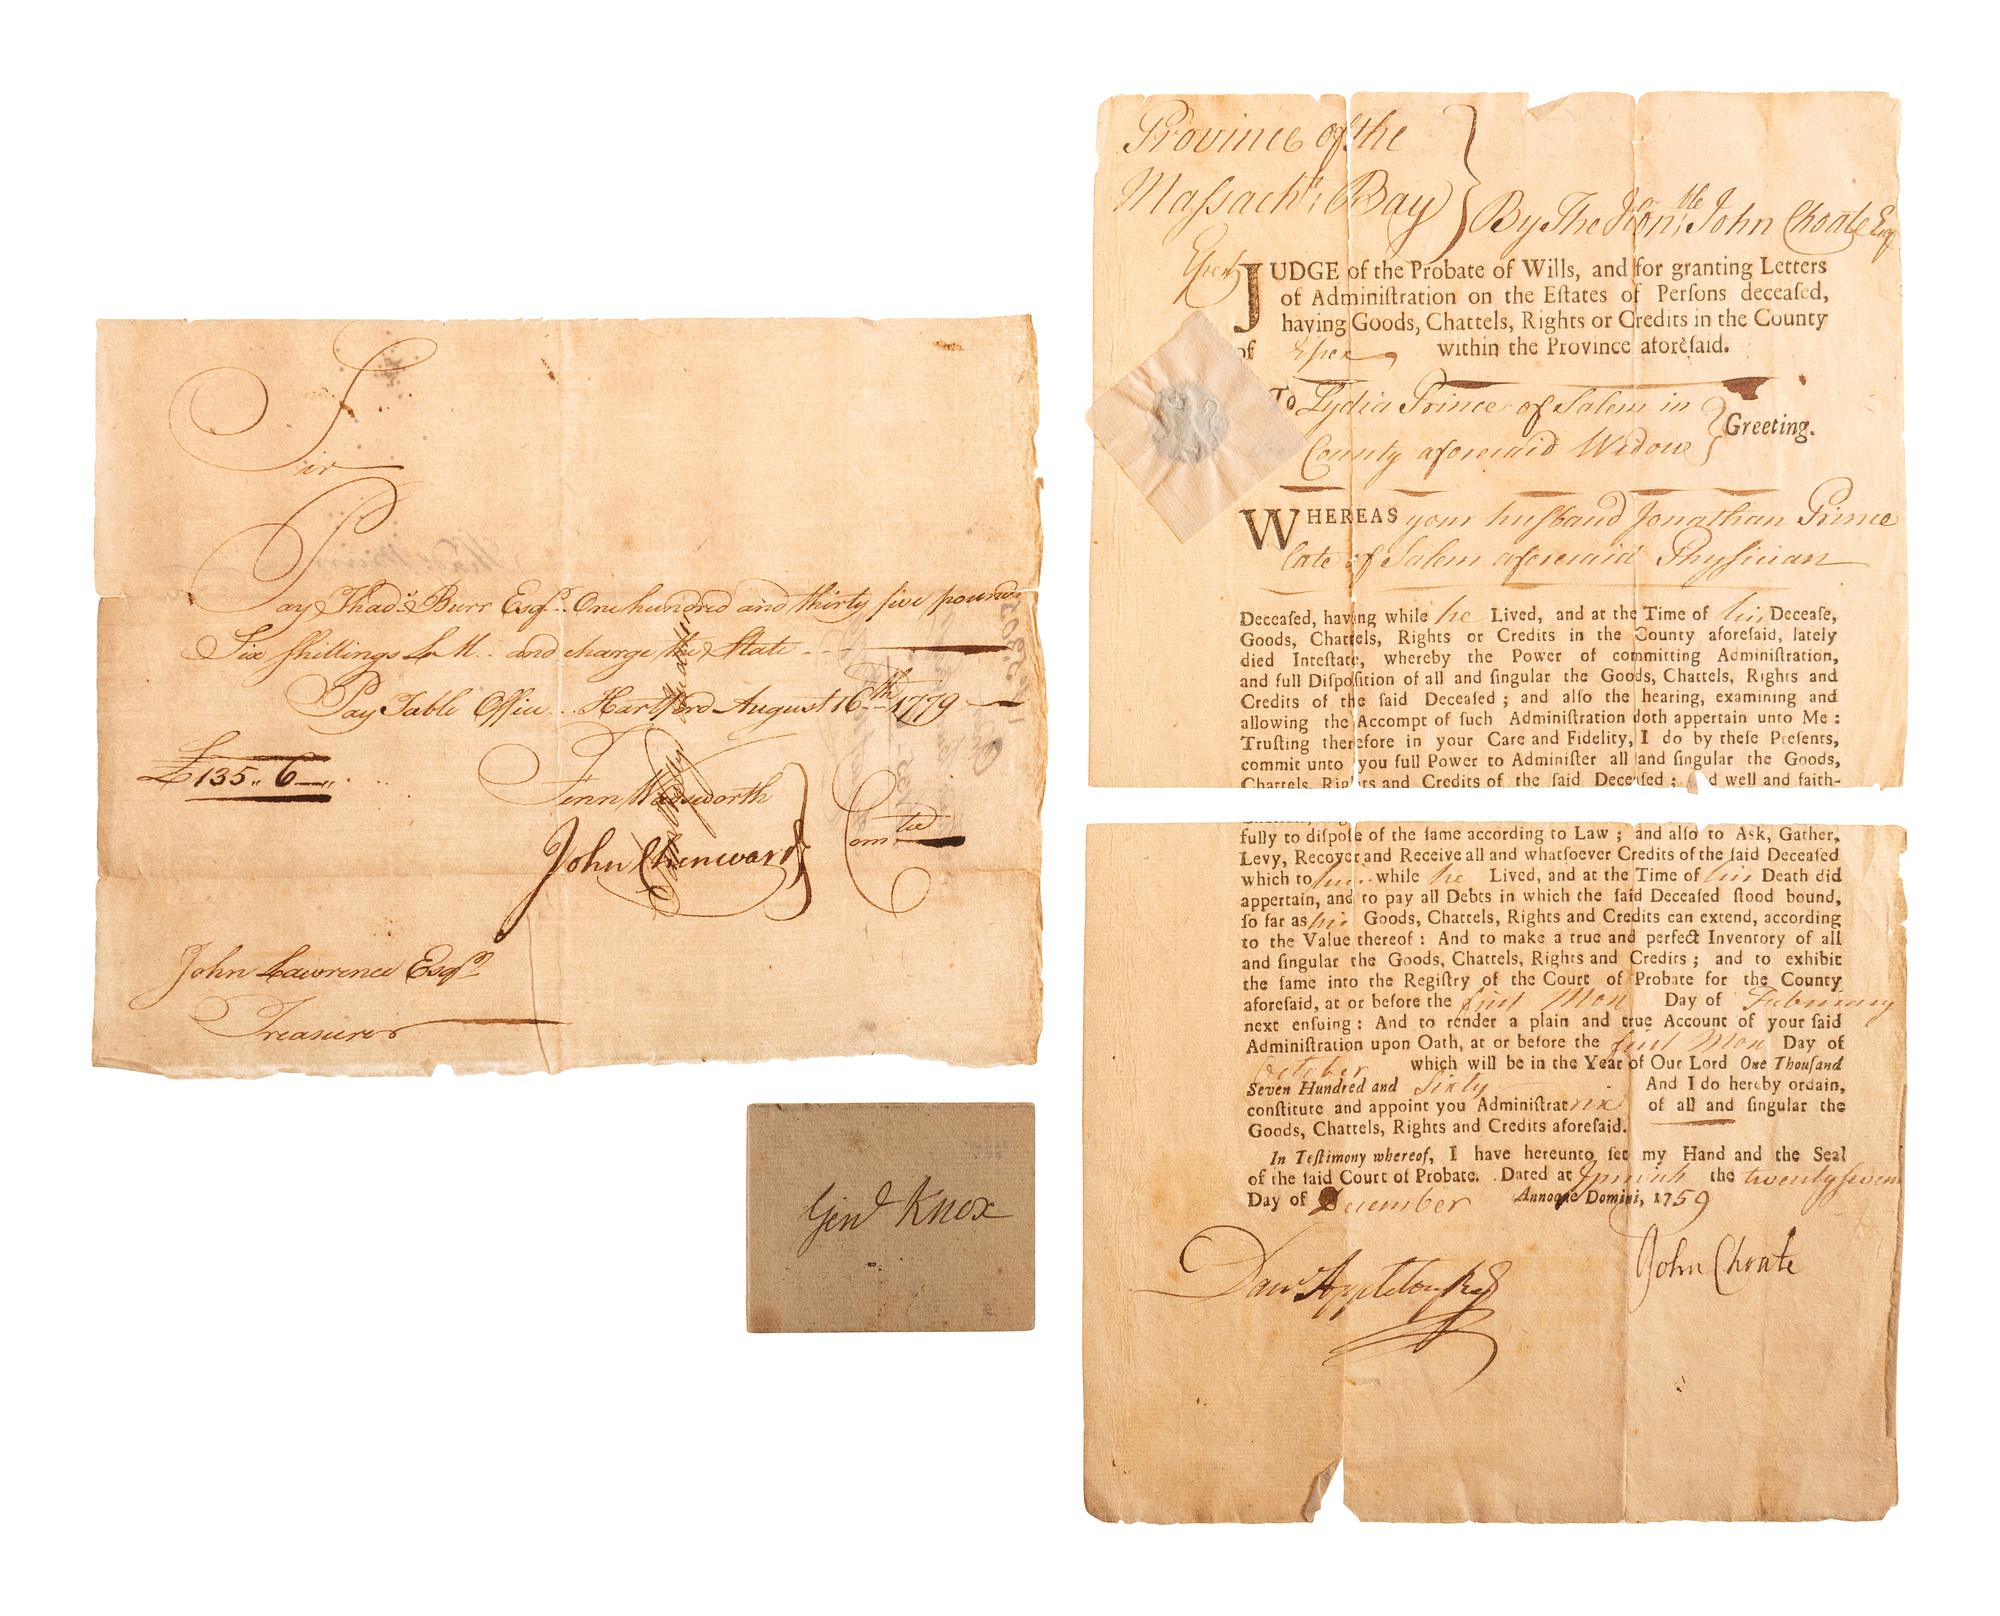 Sir
Pay Thad.s Burr Esq.r One hundred and thirty five pounds
Six shillings L M. and charge the State
Pay Table Office Hartford August 16th 1779
£135.. 6
Fenn Wadsworth
John Chenward } Com.tee
John Lawrence Esq.r
Treasurer
Gen.l Knox
Province of the
Massach.ts Bay } By The Hon.ble John Choate Esq
Essex
JUDGE of the Probate of Wills, and for granting Letters
of Adminiſtration on the Eſtates of Perſons deceaſed,
having Goods, Chattels, Rights or Credits in the County
of Essex within the Province aforeſaid.
To Lydia Prince of Salem in
County aforesaid Widow } Greeting.
WHEREAS your husband Jonathan Prince
late of Salem aforesaid Physician
Deceaſed, having while he Lived, and at the Time of his Deceaſe,
Goods, Chattels, Rights or Credits in the County aforeſaid, lately
died Inteſtate, whereby the Power of committing Adminiſtration,
and full Diſpoſition of all and ſingular the Goods, Chattels, Rights and
Credits of the ſaid Deceaſed ; and alſo the hearing, examining and
allowing the Accompt of ſuch Adminiſtration doth appertain unto Me :
Truſting therefore in your Care and Fidelity, I do by theſe Preſents,
commit unto you full Power to Adminiſter all and ſingular the Goods,
Chattels, Rights and Credits of the ſaid Deceaſed ; and well and faith-
fully to diſpoſe of the ſame according to Law ; and alſo to Ask, Gather,
Levy, Recover and Receive all and whatſoever Credits of the ſaid Deceaſed
which to him while he Lived, and at the Time of his Death did
appertain, and to pay all Debts in which the ſaid Deceaſed ſtood bound,
ſo far as his Goods, Chattels, Rights and Credits can extend, according
to the Value thereof : And to make a true and perfect Inventory of all
and ſingular the Goods, Chattels, Rights and Credits ; and to exhibit
the ſame into the Regiſtry of the Court of Probate for the County
aforeſaid, at or before the first Mon Day of February
next enſuing : And to render a plain and true Account of your ſaid
Adminiſtration upon Oath, at or before the first Mon Day of
October which will be in the Year of Our Lord One Thouſand
Seven Hundred and Sixty And I do hereby ordain,
conſtitute and appoint you Adminiſtratrix of all and ſingular the
Goods, Chattels, Rights and Credits aforeſaid.
In Teſtimony whereof, I have hereunto ſet my Hand and the Seal
of the ſaid Court of Probate. Dated at Ipswich the twenty seven
Day of December Annoque Domini, 1759
Dan.l Appleton Reg
John Choate